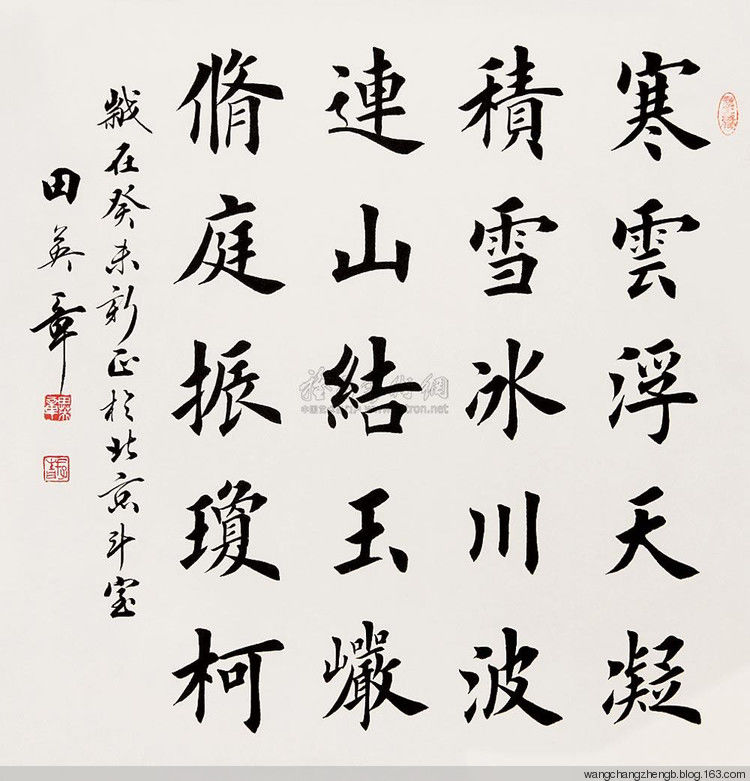 寒雲浮天凝
積雪冰川波
連山結玉巗
脩庭振瓊柯
歲在癸未新正於北京斗室
田英章
wangchangzhengb.blog.163.com